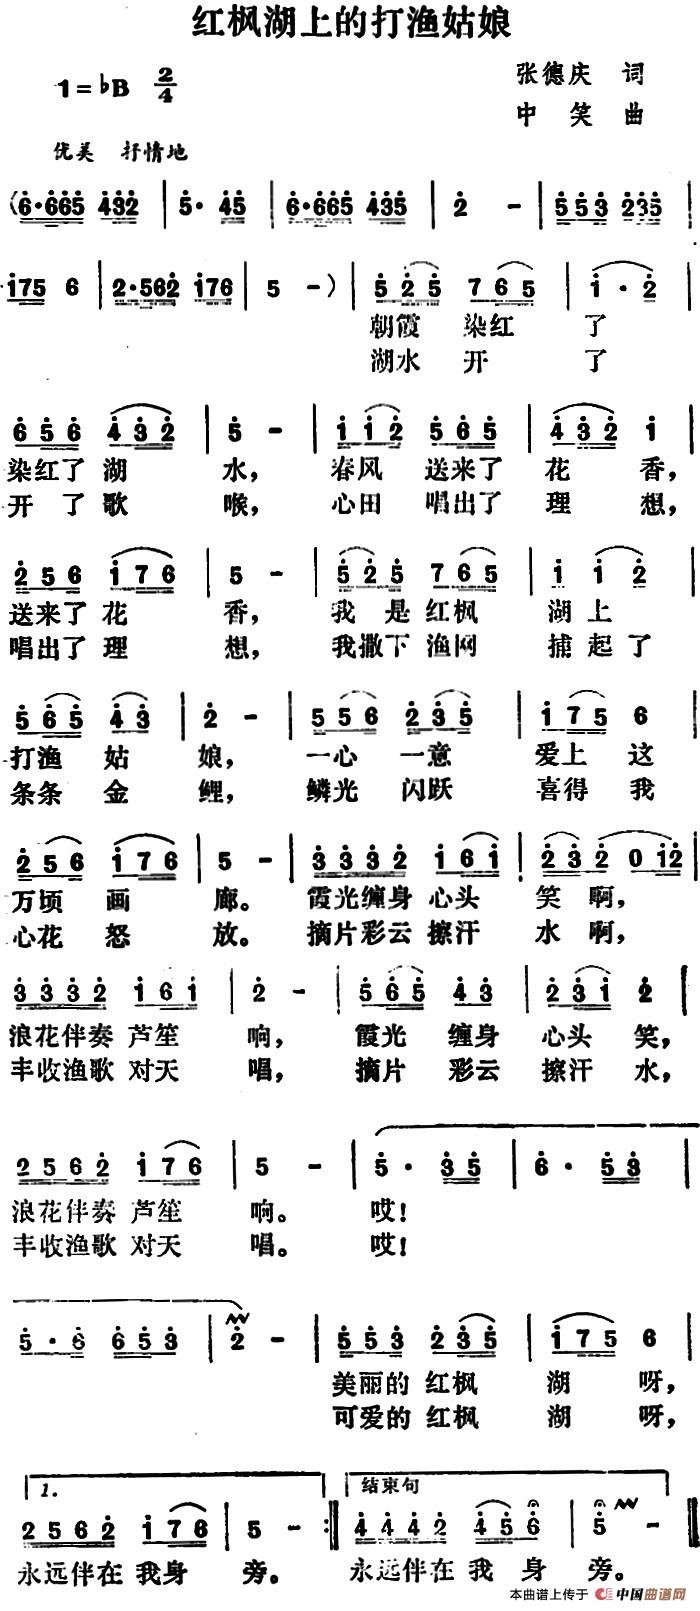 红枫湖上的打渔姑娘
1=♭B 2/4
张德庆 词
中笑 曲
优美 抒情地
(6·665 432 | 5· 45 | 6·665 435 | 2 - | 553 235 |
175 6 | 2·562 176 | 5 -) | 525 765 | 1·2 |
朝霞 染红 了
湖水 开 了
656 432 | 5 - | 112 565 | 432 1 |
染红了 湖 水, 春风 送来了 花 香,
开了歌 喉, 心田 唱出了 理 想,
256 176 | 5 - | 525 765 | 1 12 |
送来了 花 香, 我是红枫 湖上
唱出了 理 想, 我撒下 渔网 捕起了
565 43 | 2 - | 556 235 | 175 6 |
打渔 姑 娘, 一心 一意 爱上 这
条条 金 鲤, 鳞光 闪跃 喜得 我
256 176 | 5 - | 3332 161 | 232 012 |
万顷 画 廊。 霞光缠身 心头 笑 啊,
心花 怒 放。 摘片彩云 擦汗 水 啊,
3332 161 | 2 - | 565 43 | 231 2 |
浪花伴奏 芦笙 响, 霞光 缠身 心头 笑,
丰收渔歌 对天 唱, 摘片 彩云 擦汗 水,
2562 176 | 5 - | 5· 35 | 6· 53 |
浪花伴奏 芦笙 响。 哎!
丰收渔歌 对天 唱。 哎!
5·6 653 | 2 - | 553 235 | 175 6 |
美丽的 红枫 湖 呀,
可爱的 红枫 湖 呀,
1. 结束句
2562 176 | 5 - :‖ 4442 456 | 5 - ‖
永远伴在 我身 旁。 永远伴在 我 身 旁。
本曲谱上传于 中国曲谱网